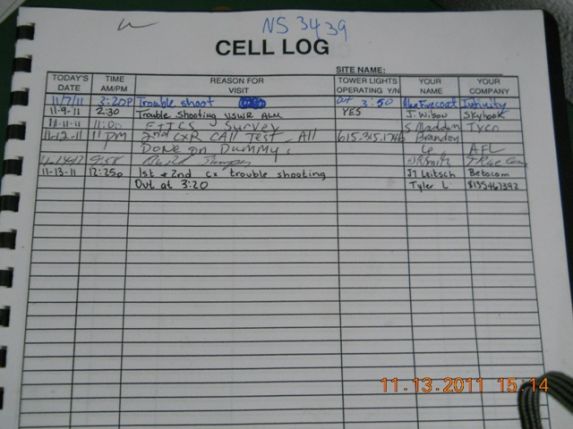 NS 3439
CELL LOG
SITE NAME:
TODAY'S DATE TIME AM/PM REASON FOR VISIT TOWER LIGHTS OPERATING Y/N YOUR NAME YOUR COMPANY
11/7/11 3:20p Trouble shoot out 3:50 Infinity
11-9-11 2:30 Trouble shooting USWR ALM YES J. Wilson Skyhook
11-11-11 11:00 Survey S Madden Tyco
11-12-11 11 PM 2nd CXR CAll Test All 615-315-1746 Brandon
Done on Dummy. AFL
11-13-11 12:25p 1st + 2nd cx trouble shooting JT Leitsch Betacom
Out at 3:20 Tyler L
11.13.2011 15:14